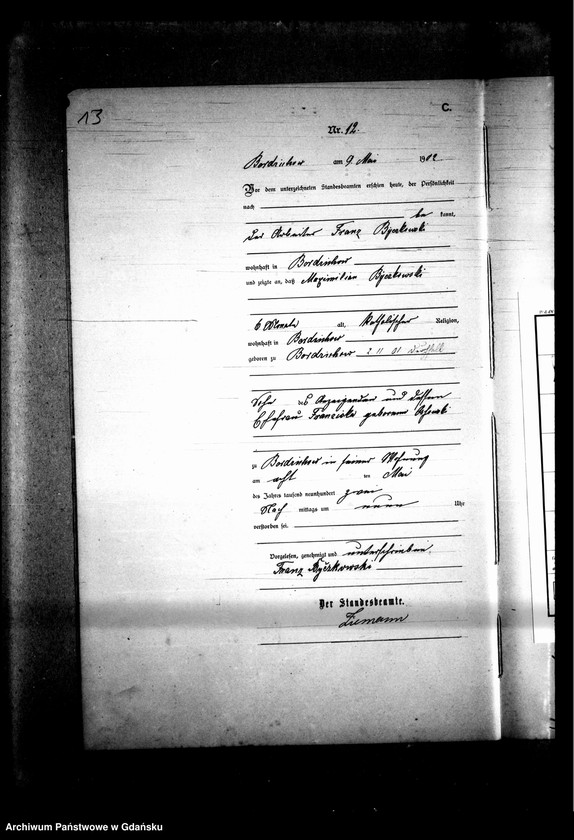 13
C.
Nr. 12.
Bordzichow am 9. Mai 1902
Vor dem unterzeichneten Standesbeamten erschien heute, der Persönlichkeit
nach
be kannt,
der Arbeiter Franz Byczkowski
wohnhaft in Bordzichow
und zeigte an, daß Maximilian Byczkowski
6 Monate alt, katholischer Religion,
wohnhaft in Bordzichow
geboren zu Bordzichow 2 11 01
Sohn des Anzeigenden und dessen
Ehefrau Franziska geborene
zu Bordzichow in seiner Wohnung
am acht ten Mai
des Jahres tausend neunhundert zwei
Nach mittags um neun Uhr
verstorben sei.
Vorgelesen, genehmigt und unterschrieben
Franz Byczkowski
Der Standesbeamte.
Ziemann
Archiwum Państwowe w Gdańsku